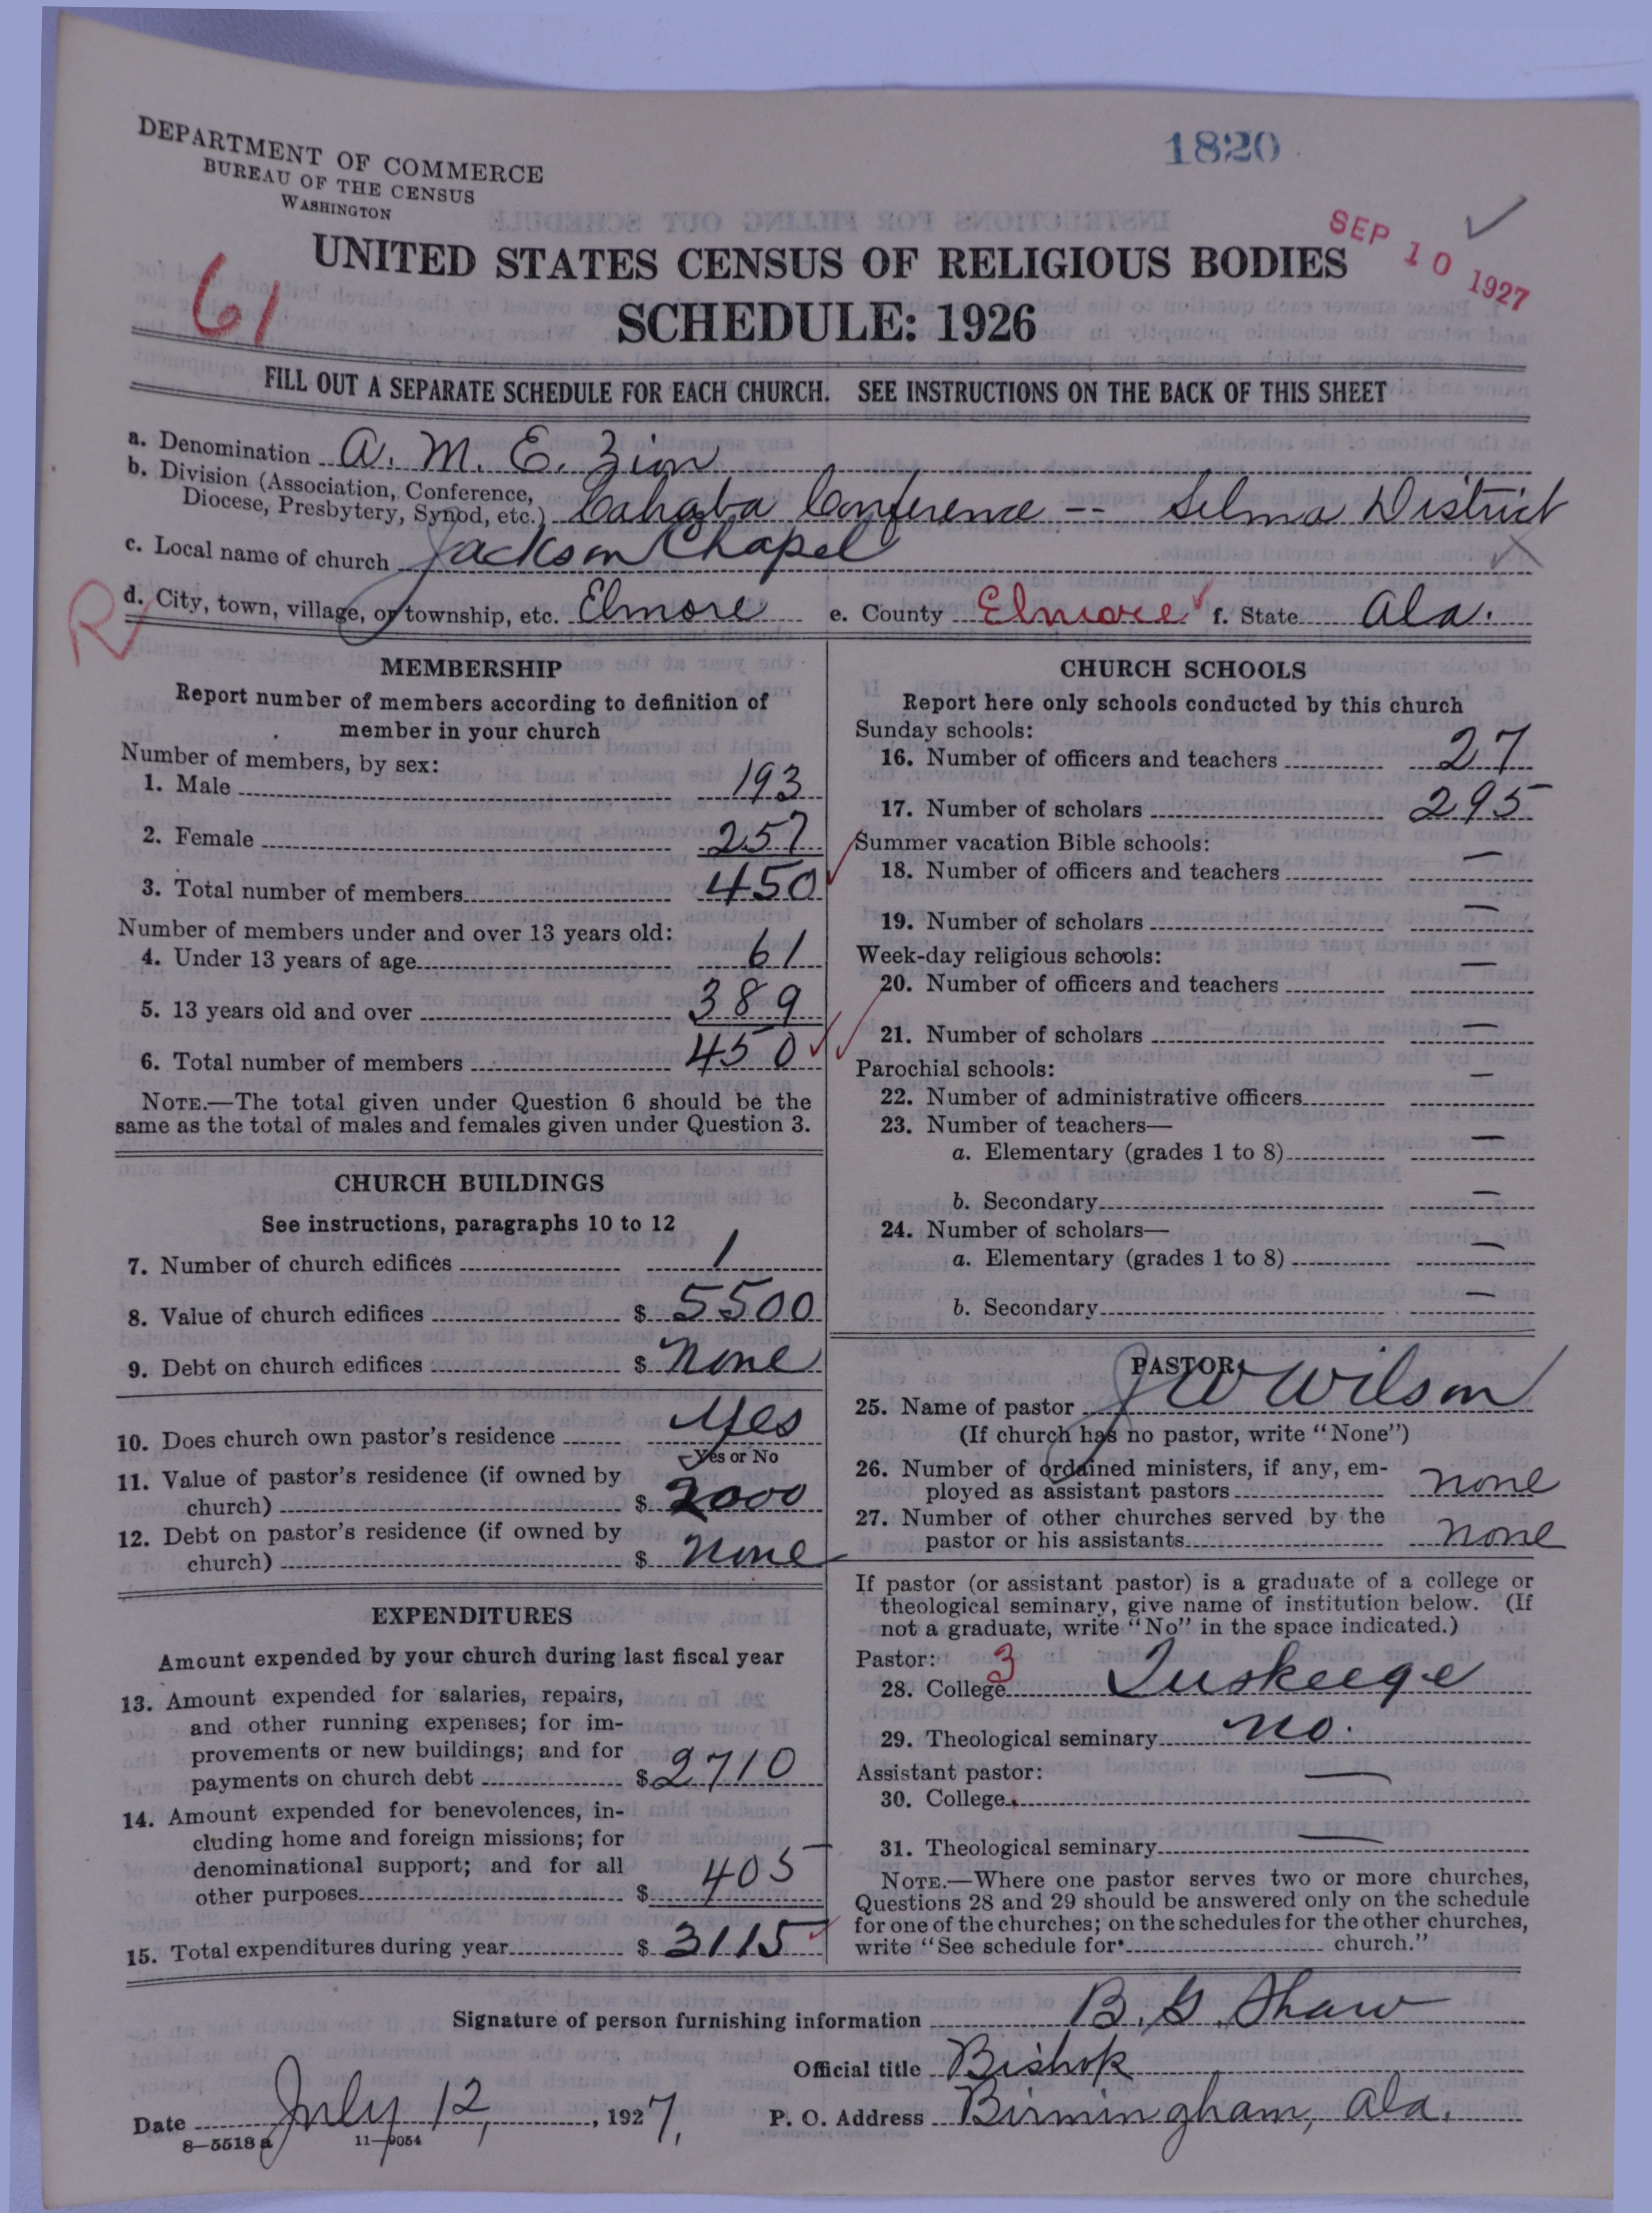 1820
DEPARTMENT OF COMMERCE
BUREAU OF THE CENSUS
WASHINGTON
SEP 10 1927
UNITED STATES CENSUS OF RELIGIOUS BODIES
61
SCHEDULE: 1926
FILL OUT A SEPARATE SCHEDULE FOR EACH CHURCH. SEE INSTRUCTIONS ON THE BACK OF THIS SHEET
a. Denomination A. M. E. Zion
b. Division (Association, Conference,
Diocese, Presbytery, Synod, etc.) Cahaba Conference -- Selma District
c. Local name of church Jackson Chapel
R
d. City, town, village, or township, etc. Elmore e. County Elmore f. State Ala.
MEMBERSHIP
Report number of members according to definition of
member in your church
Number of members, by sex:
1. Male 193
2. Female 257
3. Total number of members 450
Number of members under and over 13 years old:
4. Under 13 years of age 61
5. 13 years old and over 389
6. Total number of members 450
NOTE.—The total given under Question 6 should be the
same as the total of males and females given under Question 3.
CHURCH BUILDINGS
See instructions, paragraphs 10 to 12
7. Number of church edifices 1
8. Value of church edifices $ 5500
9. Debt on church edifices $ None
10. Does church own pastor's residence Yes
Yes or No
11. Value of pastor's residence (if owned by
church) $ 2000
12. Debt on pastor's residence (if owned by
church) $ None
EXPENDITURES
Amount expended by your church during last fiscal year
13. Amount expended for salaries, repairs,
and other running expenses; for im-
provements or new buildings; and for
payments on church debt $ 2710
14. Amount expended for benevolences, in-
cluding home and foreign missions; for
denominational support; and for all
other purposes $ 405
15. Total expenditures during year $ 3115
CHURCH SCHOOLS
Report here only schools conducted by this church
Sunday schools:
16. Number of officers and teachers 27
17. Number of scholars 295
Summer vacation Bible schools:
18. Number of officers and teachers —
19. Number of scholars —
Week-day religious schools:
20. Number of officers and teachers —
21. Number of scholars —
Parochial schools:
22. Number of administrative officers —
23. Number of teachers—
a. Elementary (grades 1 to 8) —
b. Secondary —
24. Number of scholars—
a. Elementary (grades 1 to 8) —
b. Secondary —
PASTOR
25. Name of pastor J W Wilson
(If church has no pastor, write "None")
26. Number of ordained ministers, if any, em-
ployed as assistant pastors none
27. Number of other churches served by the
pastor or his assistants none
If pastor (or assistant pastor) is a graduate of a college or
theological seminary, give name of institution below. (If
not a graduate, write "No" in the space indicated.)
Pastor: 3
28. College Tuskeege
29. Theological seminary no.
Assistant pastor:
30. College —
31. Theological seminary —
NOTE.—Where one pastor serves two or more churches,
Questions 28 and 29 should be answered only on the schedule
for one of the churches; on the schedules for the other churches,
write "See schedule for church."
Signature of person furnishing information B. G. Shaw
Official title Bishop
Date July 12, 1927, P. O. Address Birmingham, Ala.
8—5518 a 11—9054